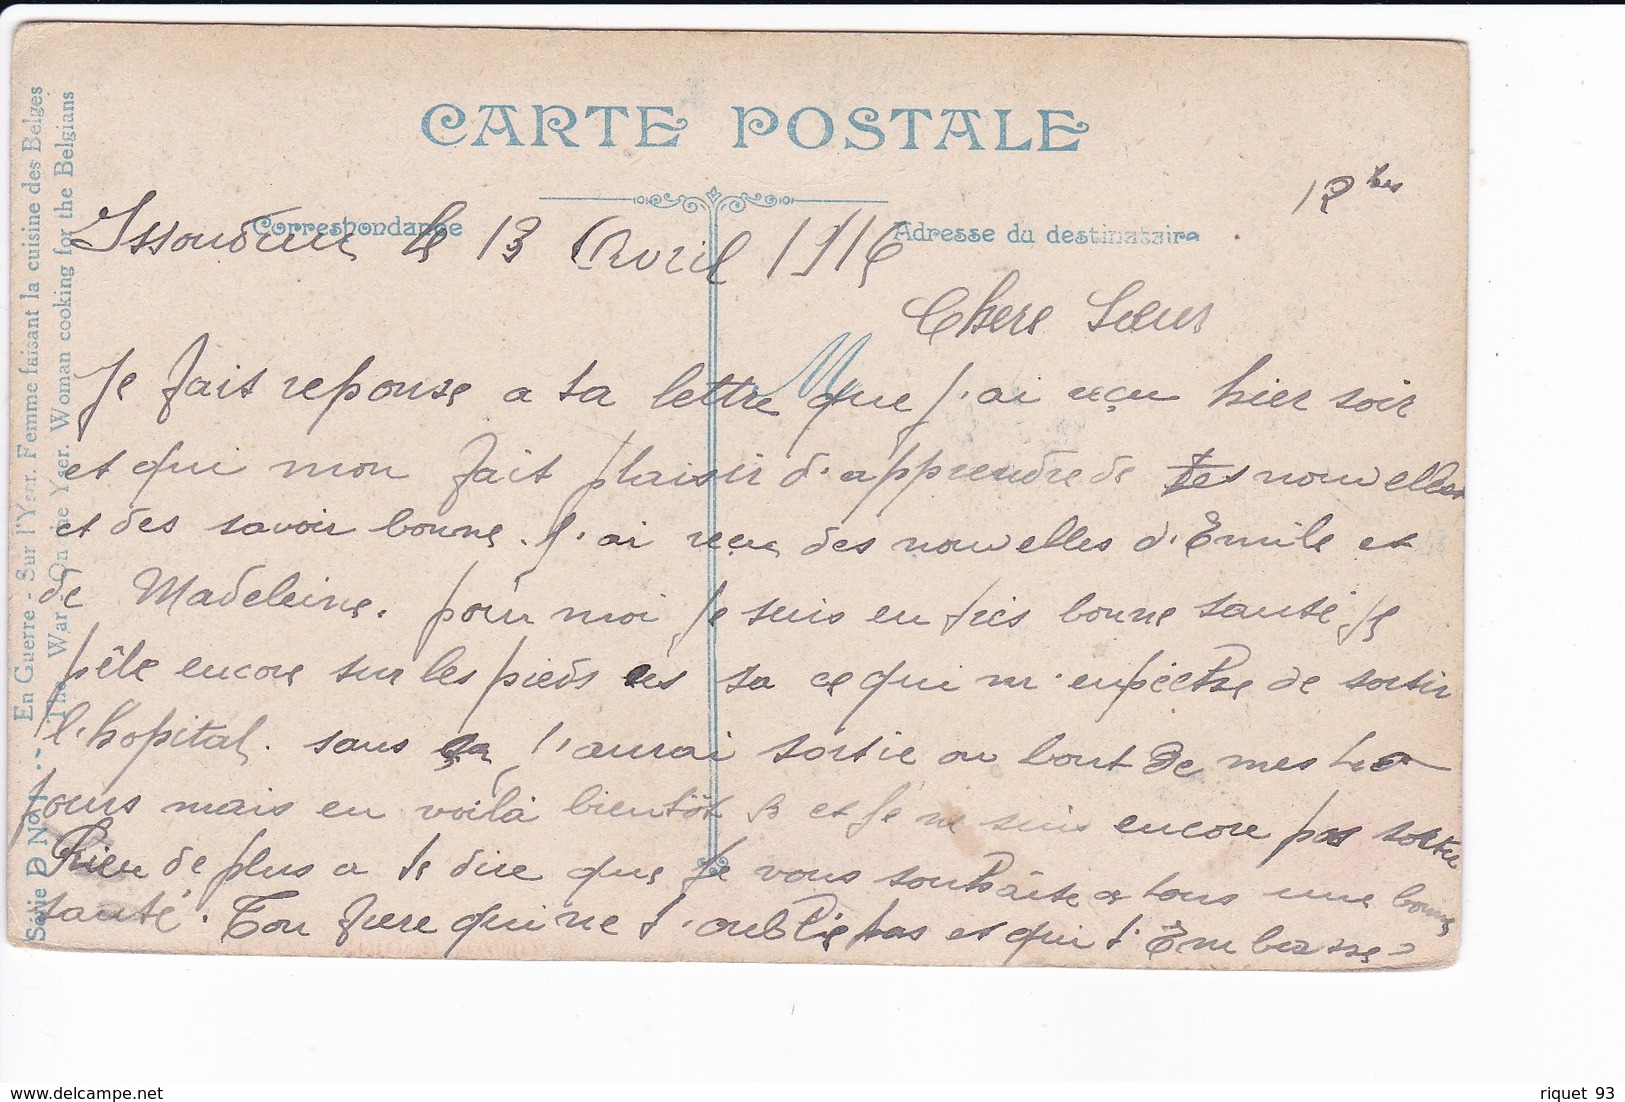 CARTE POSTALE
Correspondance
Adresse du destinataire
Issoudun le 13 Avril 1916
Chere Sœur
Je fait reponse a ta lettre que j'ai reçu hier soir
et qui mon fait plaisir d'apprendre de tes nouvelles
et des savoir bonne. J'ai reçu des nouvelles d'Emile et
de Madeleine. pour moi je suis en très bonne santé je
pêle encore sur les pieds ces sa ce qui m'enpéche de sortir
l'hopital. sans sa j'aurai sortie au bout de mes
jours mais en voilà bientôt et je ne suis encore pas sortie
Rien de plus a te dire que je vous souhaite a tous une bonne
santé. Ton frere qui ne t'oublie pas et qui t'Embrasse
Série D No 1 ... En Guerre - Sur l'Yser. Femme faisant la cuisine des Belges
The War - On the Yser. Woman cooking for the Belgians
riquet 93